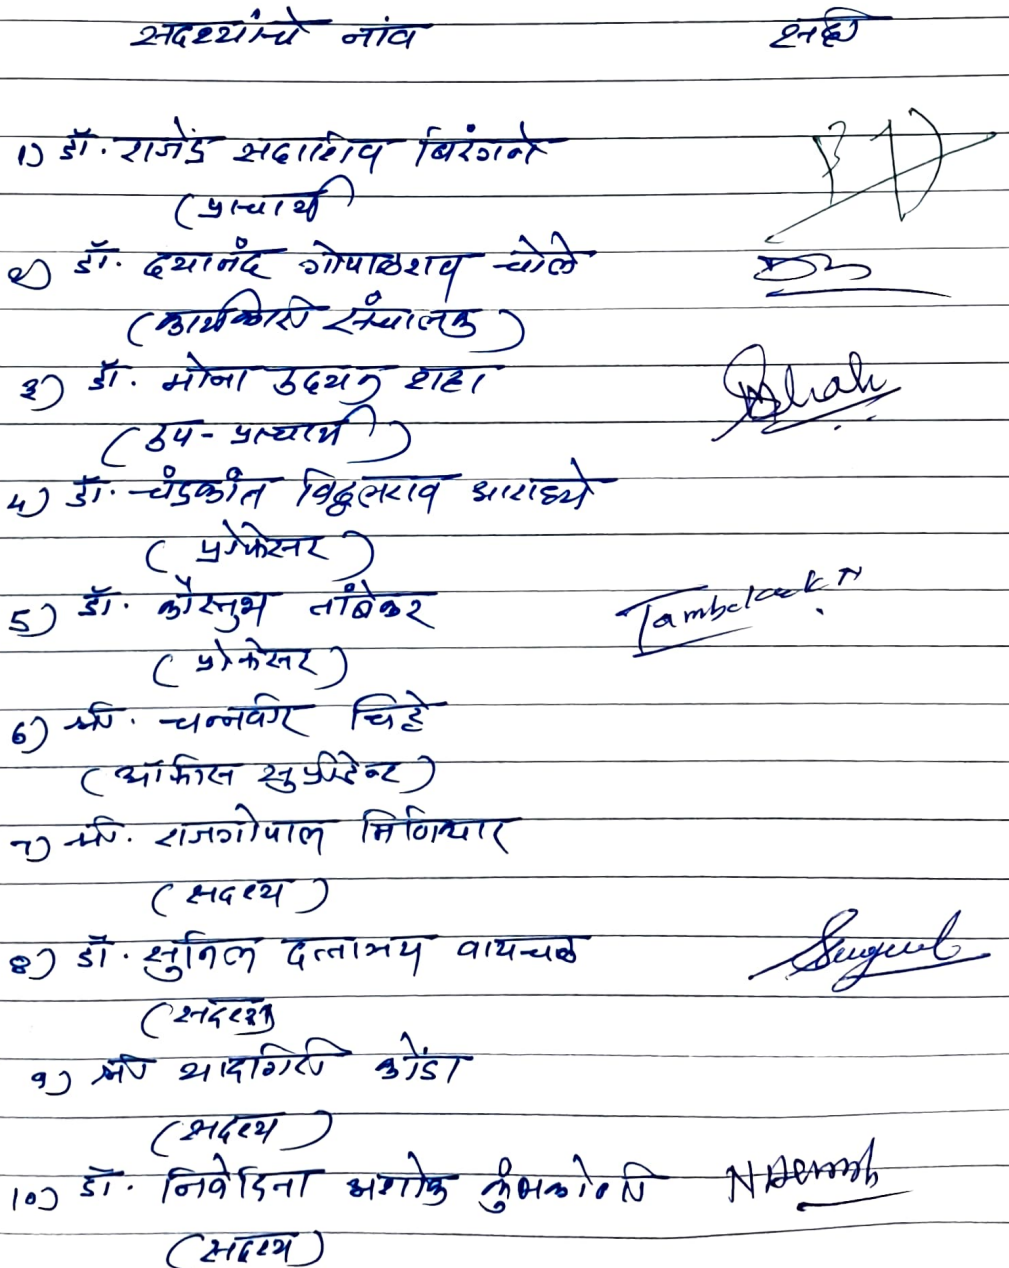 सदस्यांचे नांव सही
1) डॉ. राजेंद्र सदाशिव बिरंगने
(प्राचार्य)
2) डॉ. दयानंद गोपाळराव चोले
(कार्यकारी संचालक)
3) डॉ. मोना उदयन शहा
(उप-प्राचार्य)
4) डॉ. चंद्रकांत विठ्ठलराव आराध्ये
(प्रोफेसर)
5) डॉ. कौस्तुभ तांबेकर Tambekar
(प्रोफेसर)
6) श्री. चन्नवीर चिट्टे
(ऑफीस सुप्रीटेन्ट)
7) श्री. राजगोपाल मिणियार
(सदस्य)
8) डॉ. सुनिल दत्तात्रय वायचळ
(सदस्य)
9) श्री यादगिरी कोंडा
(सदस्य)
10) डॉ. निवेदिता अशोक कुंभकोणी
(सदस्य)